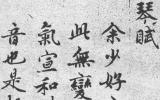 琴賦
余少好
此無變
氣宣和
音也是